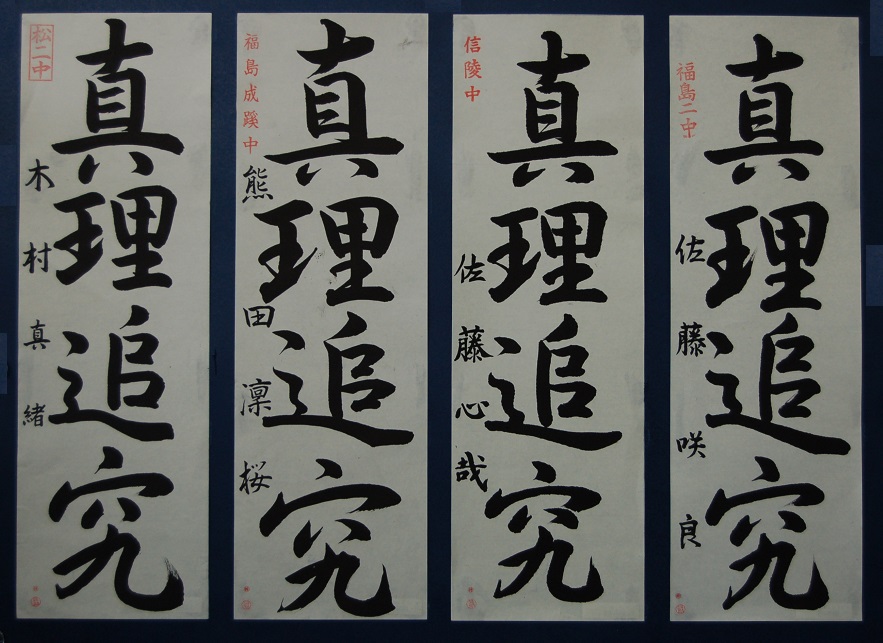 松二中
真理追究
木村真緒
福島成蹊中
真理追究
熊田凜桜
信陵中
真理追究
佐藤心哉
福島二中
真理追究
佐藤咲良